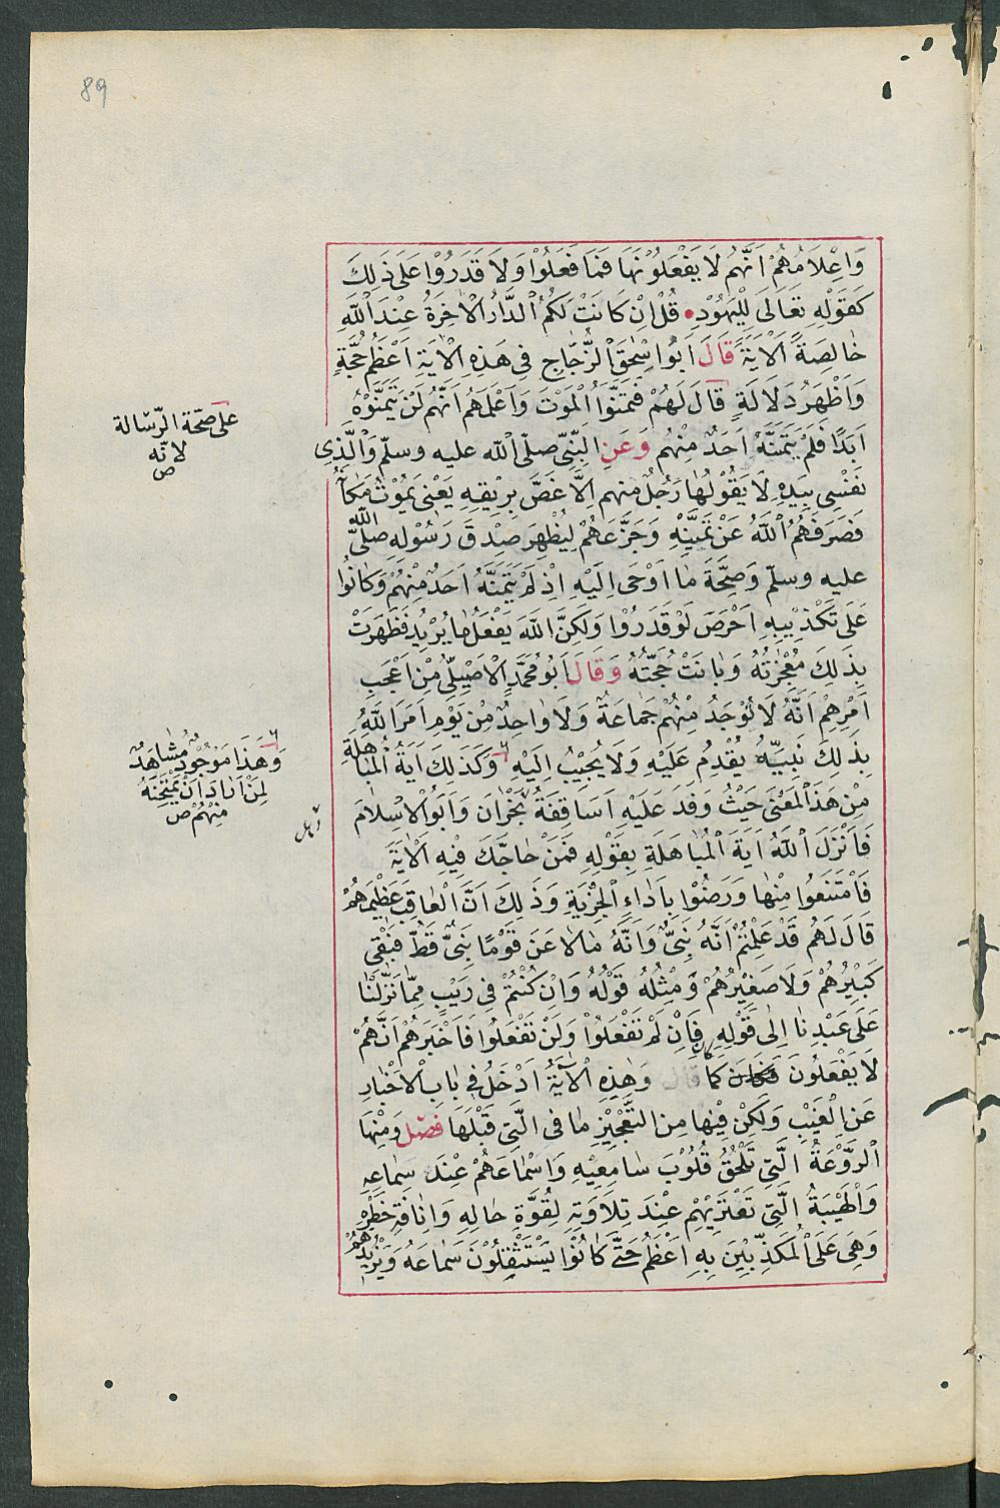 89
وَاِعْلَامُهُمْ اَنَّهُمْ لَا يَفْعَلُوْنَهَا فَمَا فَعَلُوْا وَلَا قَدَرُوْا عَلَى ذٰلِكَ
كَقَوْلِهِ تَعَالَى لِلْيَهُوْدِ قُلْ اِنْ كَانَتْ لَكُمُ الدَّارُ الْاٰخِرَةُ عِنْدَ اللّٰهِ
خَالِصَةً اَلْاٰيَةَ قَالَ اَبُوْ اِسْحٰقَ الزَّجَّاجِ فِي هَذِهِ الْاٰيَةِ اَعْظَمُ حُجَّةٍ
وَاَظْهَرُ دَلَالَةٍ قَالَ لَهُمْ فَتَمَنَّوُا الْمَوْتَ وَاَعْلَمَهُمْ اَنَّهُمْ لَنْ يَتَمَنَّوْهُ
على صحّة الرّسالة
لانّه
ص
اَبَدًا فَلَمْ يَتَمَنَّهُ اَحَدٌ مِنْهُمْ وَعَنِ النَّبِيّ صلّى الله عليه وسلّم وَالَّذِى
نَفْسِى بِيَدِهِ لَا يَقُوْلُهَا رَجُلٌ مِنهم اِلَّا غَصَّ بِرِيْقِهِ يَعْنِى يَمُوْتُ مَكَانَهُ
فَصَرَفَهُمُ اللّٰهُ عَنْ تَمَنِّيْهِ وَجَزَّعَهُمْ لِيُظْهِرَ صِدْقَ رَسُوْلِهِ صلى الله
عليه وسلّم وَصِحَّةَ مَا اَوْحَى اِلَيْهِ اِذْ لَمْ يَتَمَنَّهُ اَحَدٌ مِنْهُمْ وَكَانُوا
عَلَى تَكْذِيْبِهِ اَحْرَصَ لَوْ قَدَرُوْا وَلَكِنَّ اللّٰهَ يَفْعَلُ مَا يُرِيْدُ فَظَهَرَتْ
بِذٰلِكَ مُعْجِزَتُهُ وَبَانَتْ حُجَّتُهُ وَقَالَ اَبُو مُحَمَّدٍ الْاَصِيْلِيُّ مِنْ اَعْجَبِ
اَمْرِهِمْ اَنَّهُ لَا تُوْجَدُ مِنْهُمْ جَمَاعَةٌ وَلَا وَاحِدٌ مِنْ يَوْمِ اَمَرَ اللّٰهُ
بِذٰلِكَ نَبِيَّهُ يُقْدِمُ عَلَيْهِ وَلَا يُجِيْبُ اِلَيْهِ وَكَذٰلِكَ اٰيَةُ الْمُبَاهَلَةِ
وَهَذَا مَوْجُوْدٌ مُشَاهَدٌ
لِمَنْ اَرَادَ اَنْ يَمْتَحِنَهُ
مِنْهُمْ ص
مِنْ هَذَ الْمَعْنَى حَيْثُ وَفَدَ عَلَيْهِ اَسَاقِفَةُ نَجْرَانَ وَاَبَوُا الْاِسْلَامَ
فَاَنْزَلَ اللّٰهُ اٰيَةَ الْمُبَاهَلَةِ بِقَوْلِهِ فَمَنْ حَاجَّكَ فِيْهِ اَلْاٰيَةَ
فَامْتَنَعُوا مِنْهَا وَرَضُوْا بِاَدَاءِ الْجِزْيَةِ وَذٰلِكَ اَنَّ الْعَاقِبَ عَظِيْمَهُمْ
قَالَ لَهُمْ قَدْ عَلِمْتُمْ اَنَّهُ نَبِيٌّ وَاَنَّهُ مَا لَاعَنَ قَوْمًا نَبِيٌّ قَطُّ فَبَقِى
كَبِيْرُهُمْ وَلَا صَغِيْرُهُمْ وَمِثْلُهُ قَوْلُهُ وَاِنْ كُنْتُمْ فِى رَيْبٍ مِمَّا نَزَّلْنَا
عَلَى عَبْدِنَا اِلَى قَوْلِهِ فَاِنْ لَمْ تَفْعَلُوْا وَلَنْ تَفْعَلُوا فَاَخْبَرَهُمْ اَنَّهُمْ
لَا يَفْعَلُونَ كَمَا قال وَهٰذِهِ الْاٰيَةُ اَدْخَلُ فِي بَابِ الْاَخْبَارِ
عَنِ الْغَيْبِ وَلٰكِنْ فِيْهَا مِنَ التَّعْجِيْزِ مَا فِى الَّتِى قَبْلَهَا فصل وَمِنْهَا
الرَّوْعَةُ الَّتِي تَلْحَقُ قُلُوْبَ سَامِعِيْهِ وَاَسْمَاعَهُمْ عِنْدَ سَمَاعِهِ
وَالْهَيْبَةُ الَّتِى تَعْتَرِيْهِمْ عِنْدَ تِلَاوَتِهِ لِقُوَّةِ حَالِهِ وَاِنَافَةِ خَطَرِهِ
وَهِىَ عَلَى الْمُكَذِّبِيْنَ بِهِ اَعْظَمُ حَتَّى كَانُوْا يَسْتَثْقِلُوْنَ سَمَاعَهُ وَيَزِيْدُهُمْ